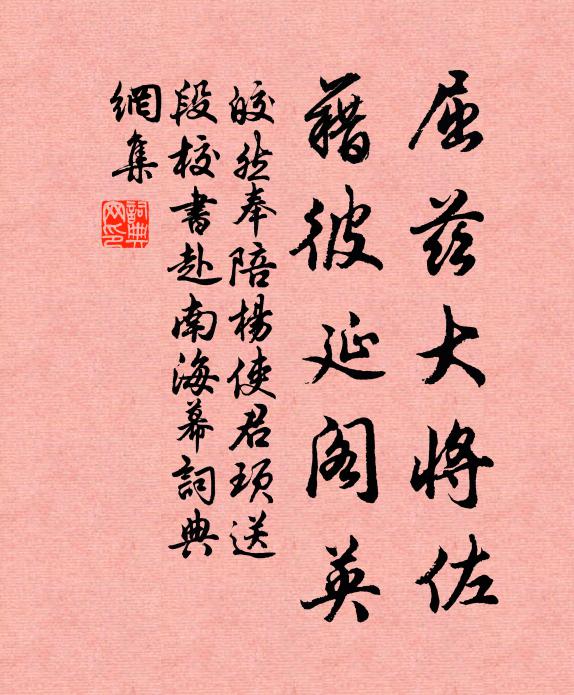 屈茲大將佐
藉彼延閣英
皎然奉陪楊使君頊送
段校書赴南海幕詞典
網集
詞典網印